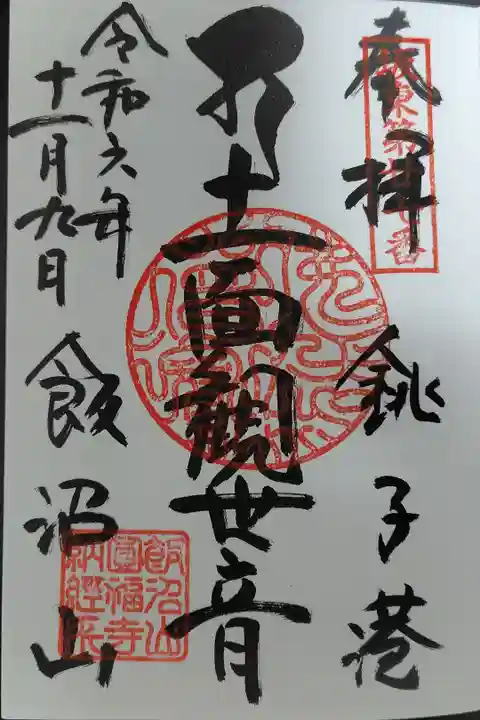 奉拝 銚子港
坂東第廿七番
十一面観世音
飯沼山
圓福寺
納經
令和六年
十一月九日
飯沼山